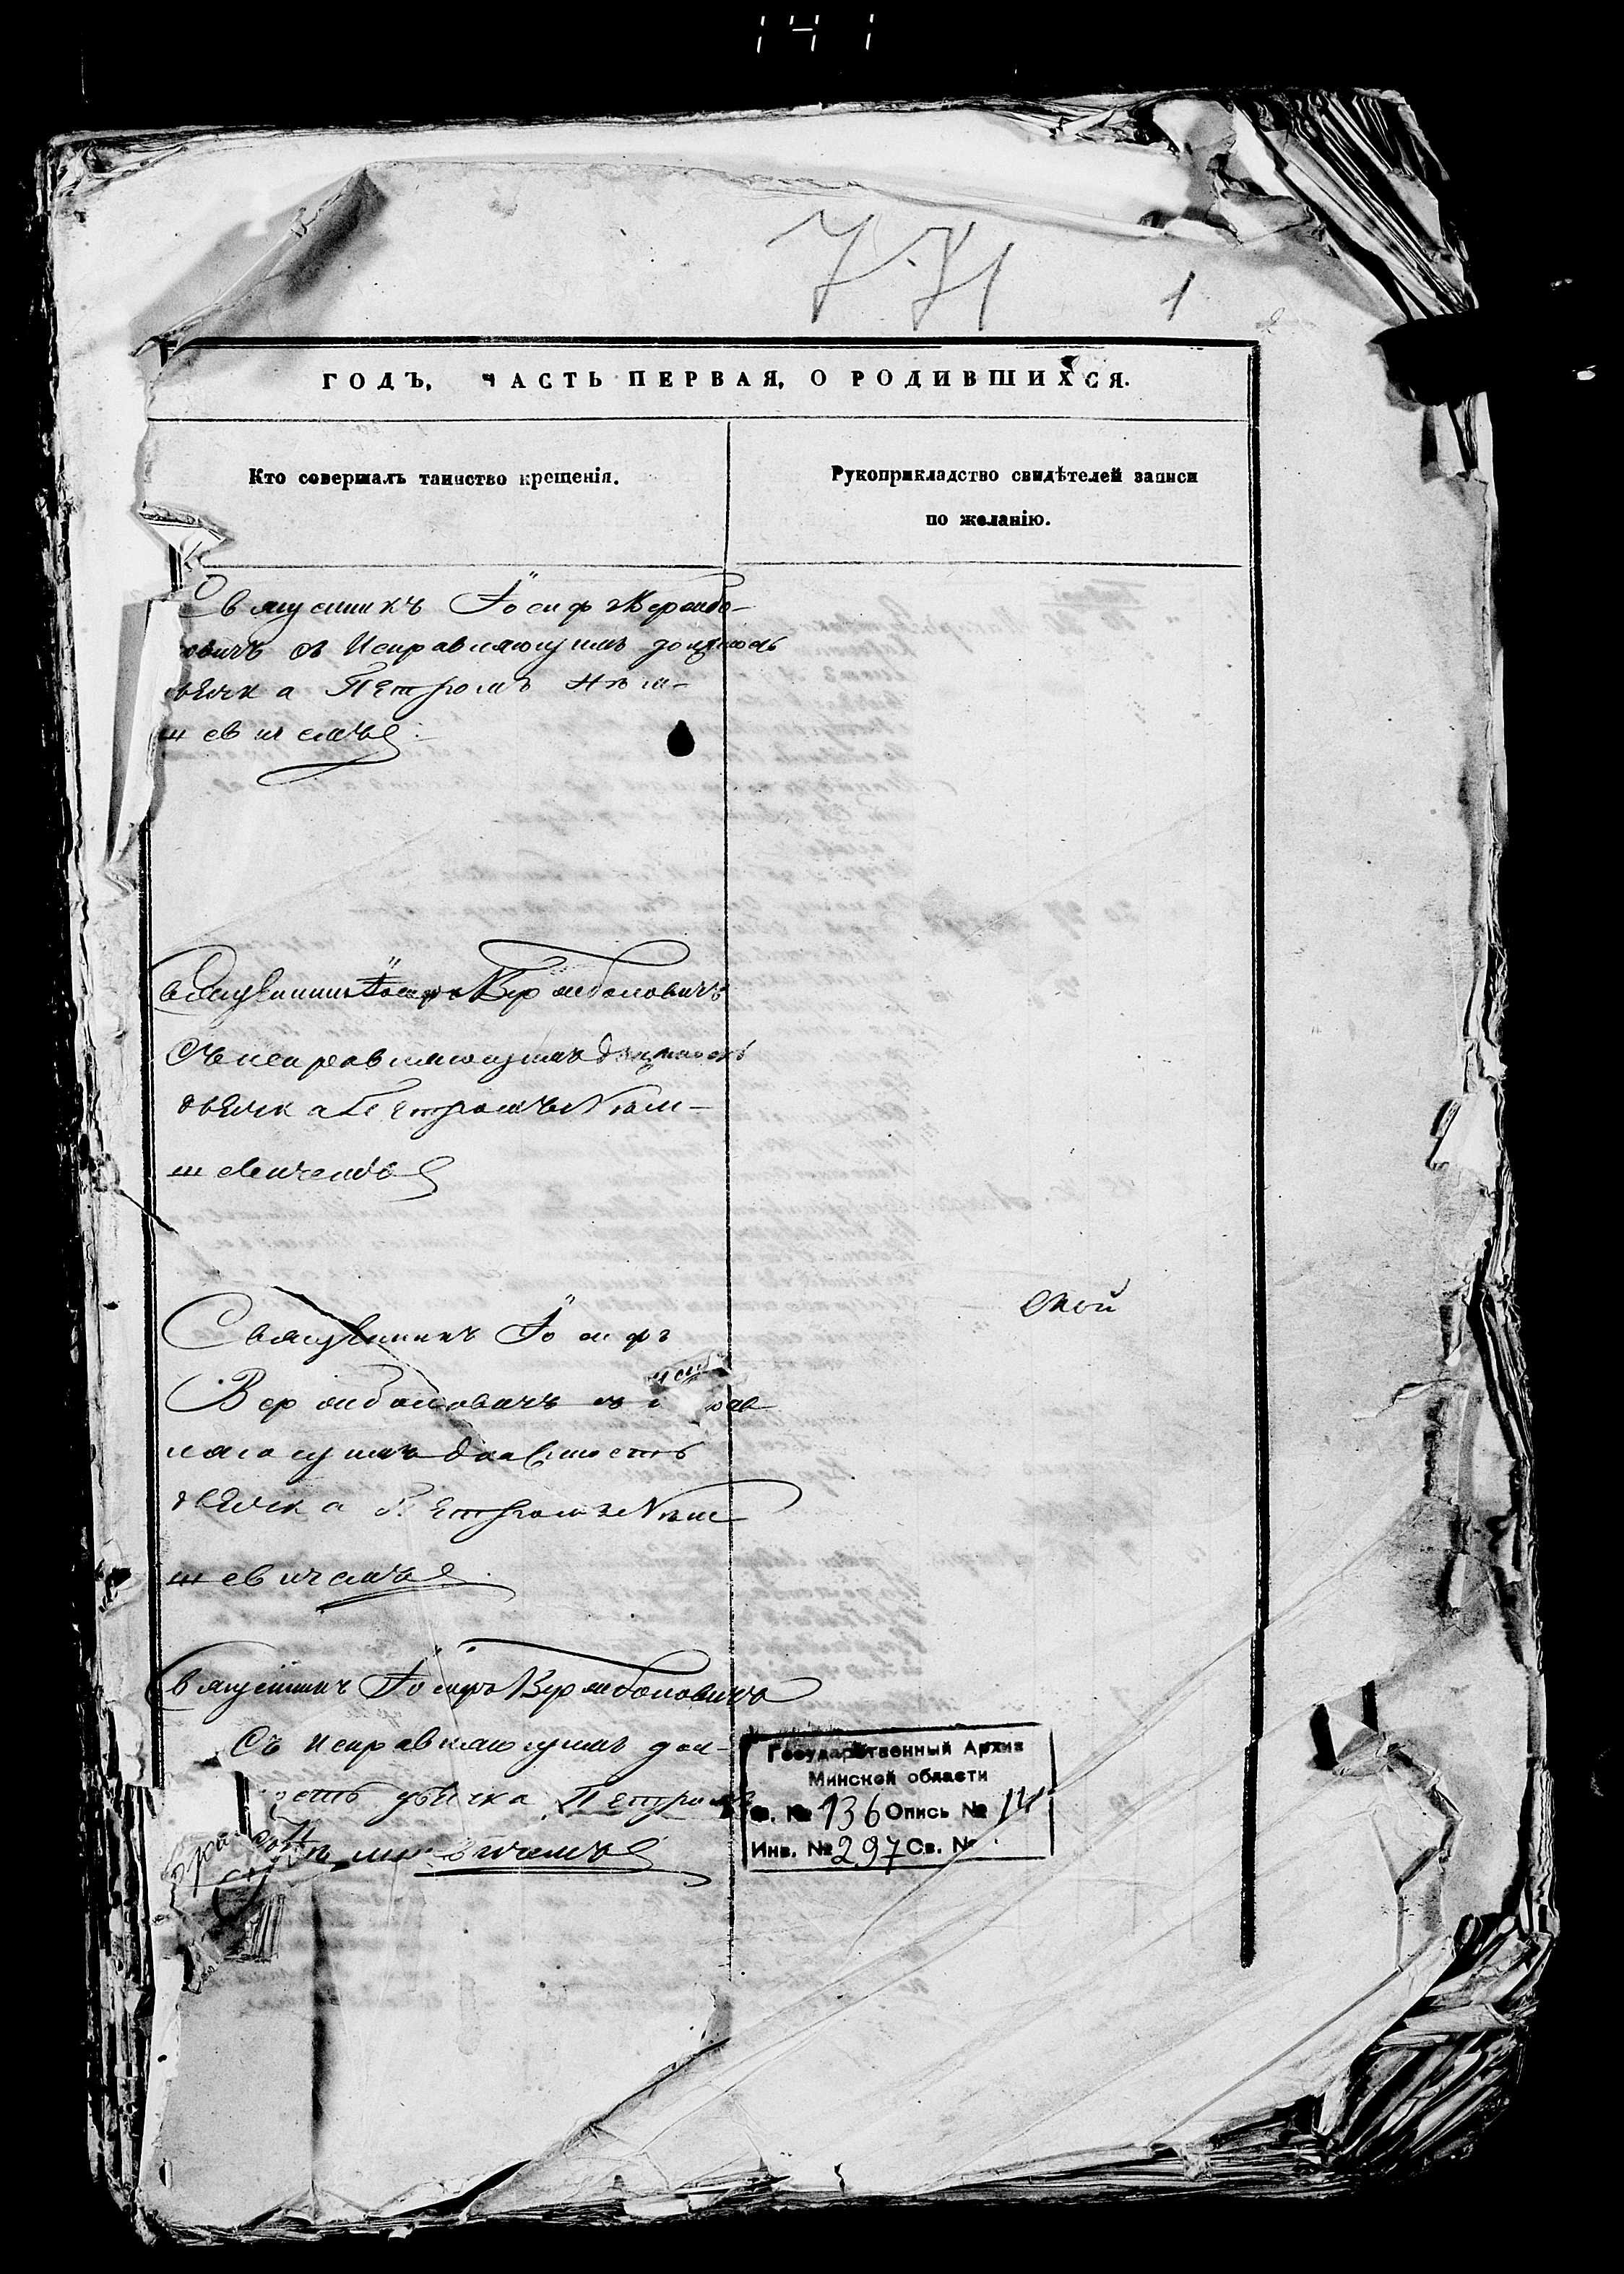 141
1
ГОДЪ, ЧАСТЬ ПЕРВАЯ, О РОДИВШИХСЯ.
Кто совершалъ таинство крещенія.
Рукоприкладство свидѣтелей записи
по желанію.
Священникъ Іосифъ Вержбо-
ловичъ съ Исправляющимъ должность
дьячка Петромъ Нѣм-
шевичемъ
Священникъ Іосифъ Вержболовичъ
Съ исправляющимъ должность
дьячка Петромъ Нѣм-
шевичемъ
Священникъ Іосифъ
Вержболовичъ съ исправ-
ляющимъ должность
дьячка Петромъ Нѣм-
шевичемъ
ской
Священникъ Іосифъ Вержболовичъ
Съ Исправляющимъ дол-
ность дьячка Петромъ
Нѣмшевичемъ
Государственный Архив
Минской области
Ф. № 136 Опись № 14
Инв. № 297 Св. №